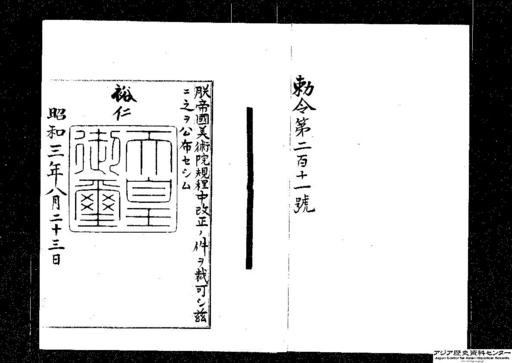 勅令第二百十一號
朕帝國美術院規程中改正ノ件ヲ裁可シ茲
ニ之ヲ公布セシム
裕仁
天皇
御璽
昭和三年八月二十三日
アジア歴史資料センター
Japan Center for Asian Historical Records